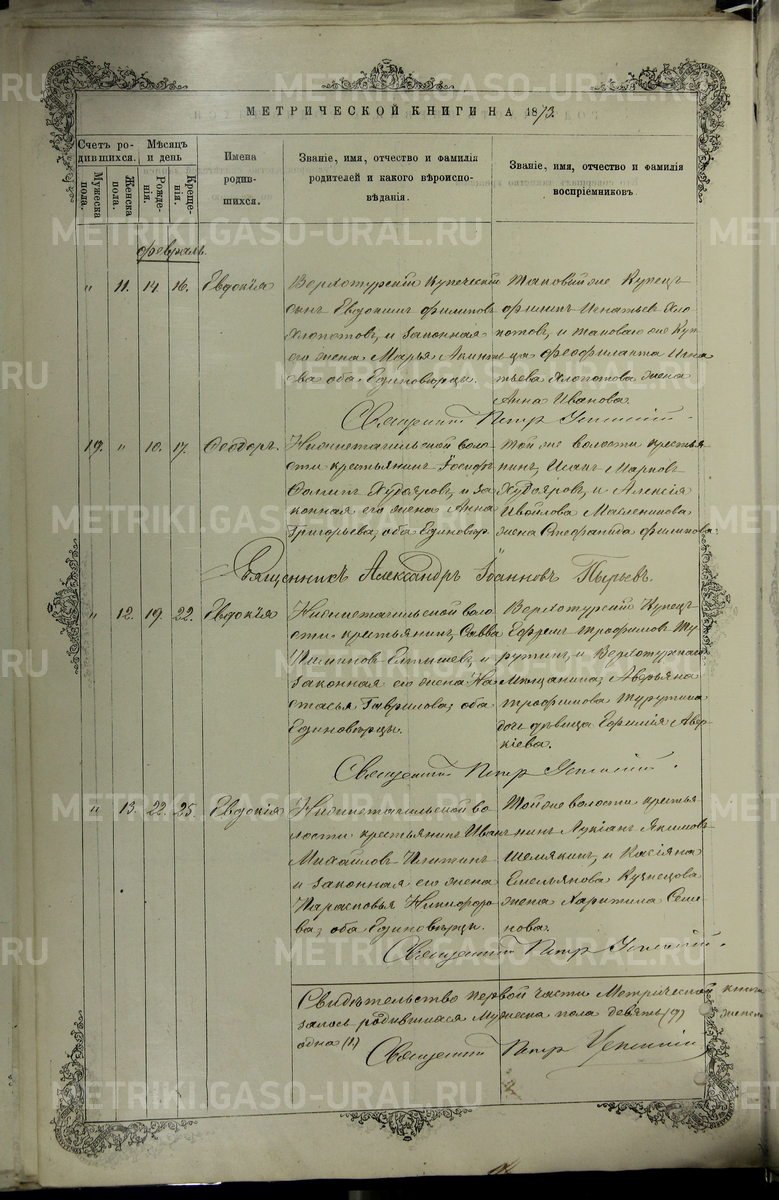 МЕТРИЧЕСКОЙ КНИГИ НА 1873.
Счетъ родившихся.
Мужеска пола.
Женска пола.
Мѣсяцъ и день
Рожденія.
Крещенія.
Имена родившихся.
Званіе, имя, отчество и фамилія родителей и какого вѣроисповѣданія.
Званіе, имя, отчество и фамилія воспріемниковъ
февраль
„ 11. 14 16. Евдокія
Верхотурскій Купеческій
сынъ Евдокимъ Филиповъ
Хлопотовъ, и законная
его жена Марья
оба Единовѣрцы.
Таковый же Купецъ
Филипъ Игнатьевъ Хло
потовъ, и таковаго же Куп
ца Феофилакта Игна
тьева Хлопотова жена
Анна Иванова.
Священникъ Петр
19. „ 10. 17. Феодоръ.
Нижнетагильской воло
сти крестьянинъ Іосифъ
Худояровъ, и за
конная его жена Анна
Григорьева, оба Единовѣр.
Той же волости крестья
нинъ, Исакъ Марковъ
Худояровъ, и Алексія
Масленикова
жена Стефанида Филипова
Священникъ Александръ Іоанновъ Пырьевъ.
„ 12. 19. 22. Евдокія
Нижнетагильской воло
сти крестьянинъ, Савва
и
законная его жена На
стасья Гаврилова, оба
Единовѣрцы.
Верхотурскій Купецъ
Ефремъ Трофимовъ Ту
рутинъ, и Верхотурскаго
Мѣщанина, Аверьяна
Трофимова Турутина
дочь дѣвица Ефимія Авер
кіева.
Священникъ Петр
„ 13. 22. 25. Евдокія
Нижнетагильской во
лости крестьянинъ Иванъ
Михайловъ
и законная его жена
Парасковья Никифоро
ва, оба Единовѣрцы.
Той же волости крестья
нинъ Лукіанъ Якимовъ
Шемякинъ, и Касіяна
Емельянова Кузнецова
жена Харитина Семе
нова.
Священникъ Петр
Свидѣтельство первой части Метрической книги
залось родившихся Мужеска пола девять (9) женска
одна (1)
Священникъ Петр
METRIKI.GASO-URAL.RU